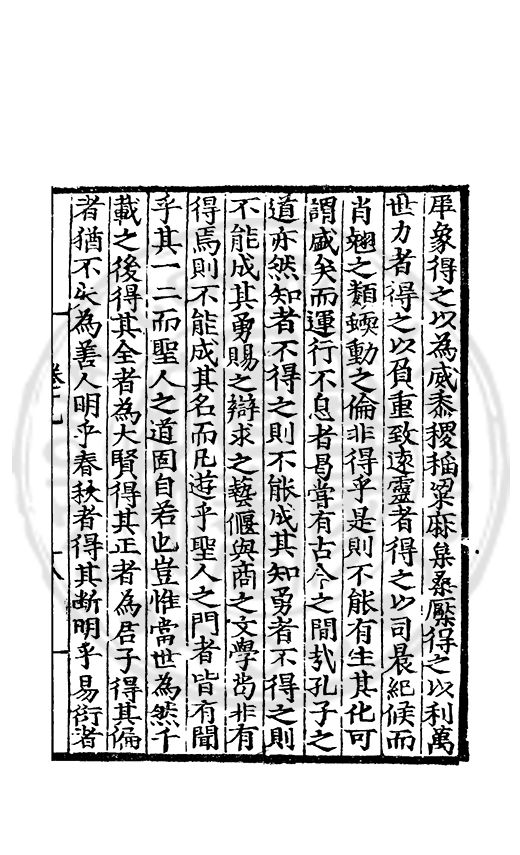 犀象得之以為威黍稷稻粱麻枲桑檿得之以利萬
世力者得之以負重致遠靈者得之以司晨紀候而
肖翹之類蝡動之倫非得乎是則不能有生其化可
謂盛矣而運行不息者曷嘗有古今之間哉孔子之
道亦然知者不得之則不能成其知勇者不得之則
不能成其勇賜之辯求之藝偃與商之文學苟非有
得焉則不能成其名而凡遊乎聖人之門者皆有聞
乎其一二而聖人之道固自若也豈惟當世為然千
載之後得其全者為大賢得其正者為君子得其偏
者猶不失為善人明乎春秋者得其斷明乎易衍者